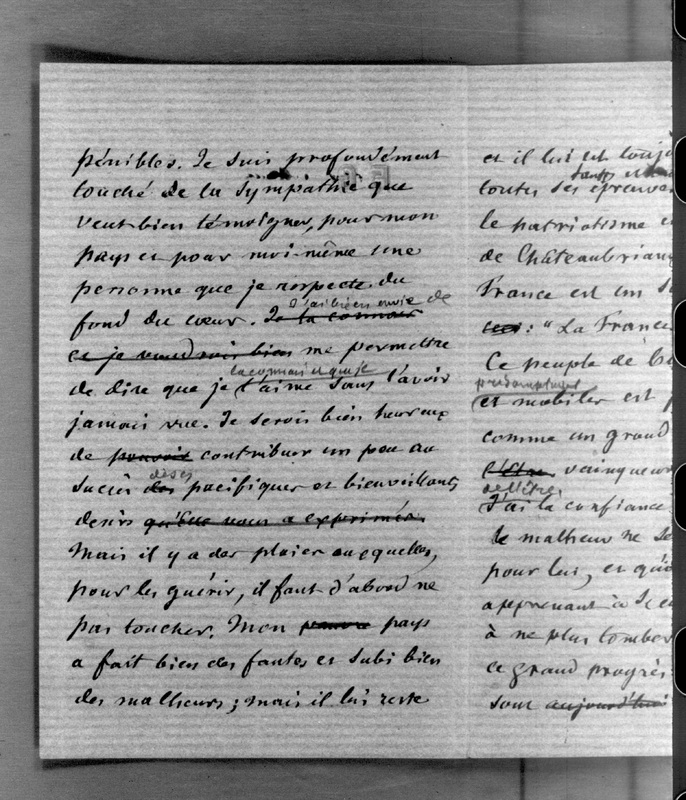 pénibles. Je suis profondément
touché de la sympathie que
veut bien témoigner, pour mon
pays et pour moi-même une
personne que je respecte du
j'ai bien envie de
fond du cœur. Je la connais
et je voudrois bien me permettre
la connais et que je
de dire que je l'aime sans l'avoir
jamais vue. Je serois bien heureux
de pouvoir contribuer un peu au
de ses
succès des pacifiques et bienveillants
desirs qu'Elle nous a exprimés.
Mais il y a des plaies auxquelles,
pour les guérir, il faut d'abord ne
pas toucher. Mon pauvre pays
a fait bien des fautes et subi bien
des malheurs; mais il lui reste
et il lui est touj
toutes ses épreuves
le patriotisme e
de Châteaubrian
France est un s
: "La France
Ce peuple de
présomptueux
et mobile est
comme un grand
vainqueur
de l'être.
J'ai la confiance
le malheur ne se
pour lui, et qu'
apprenant à se
à ne plus tomber
ce grand progrès
sont aujourd'hui